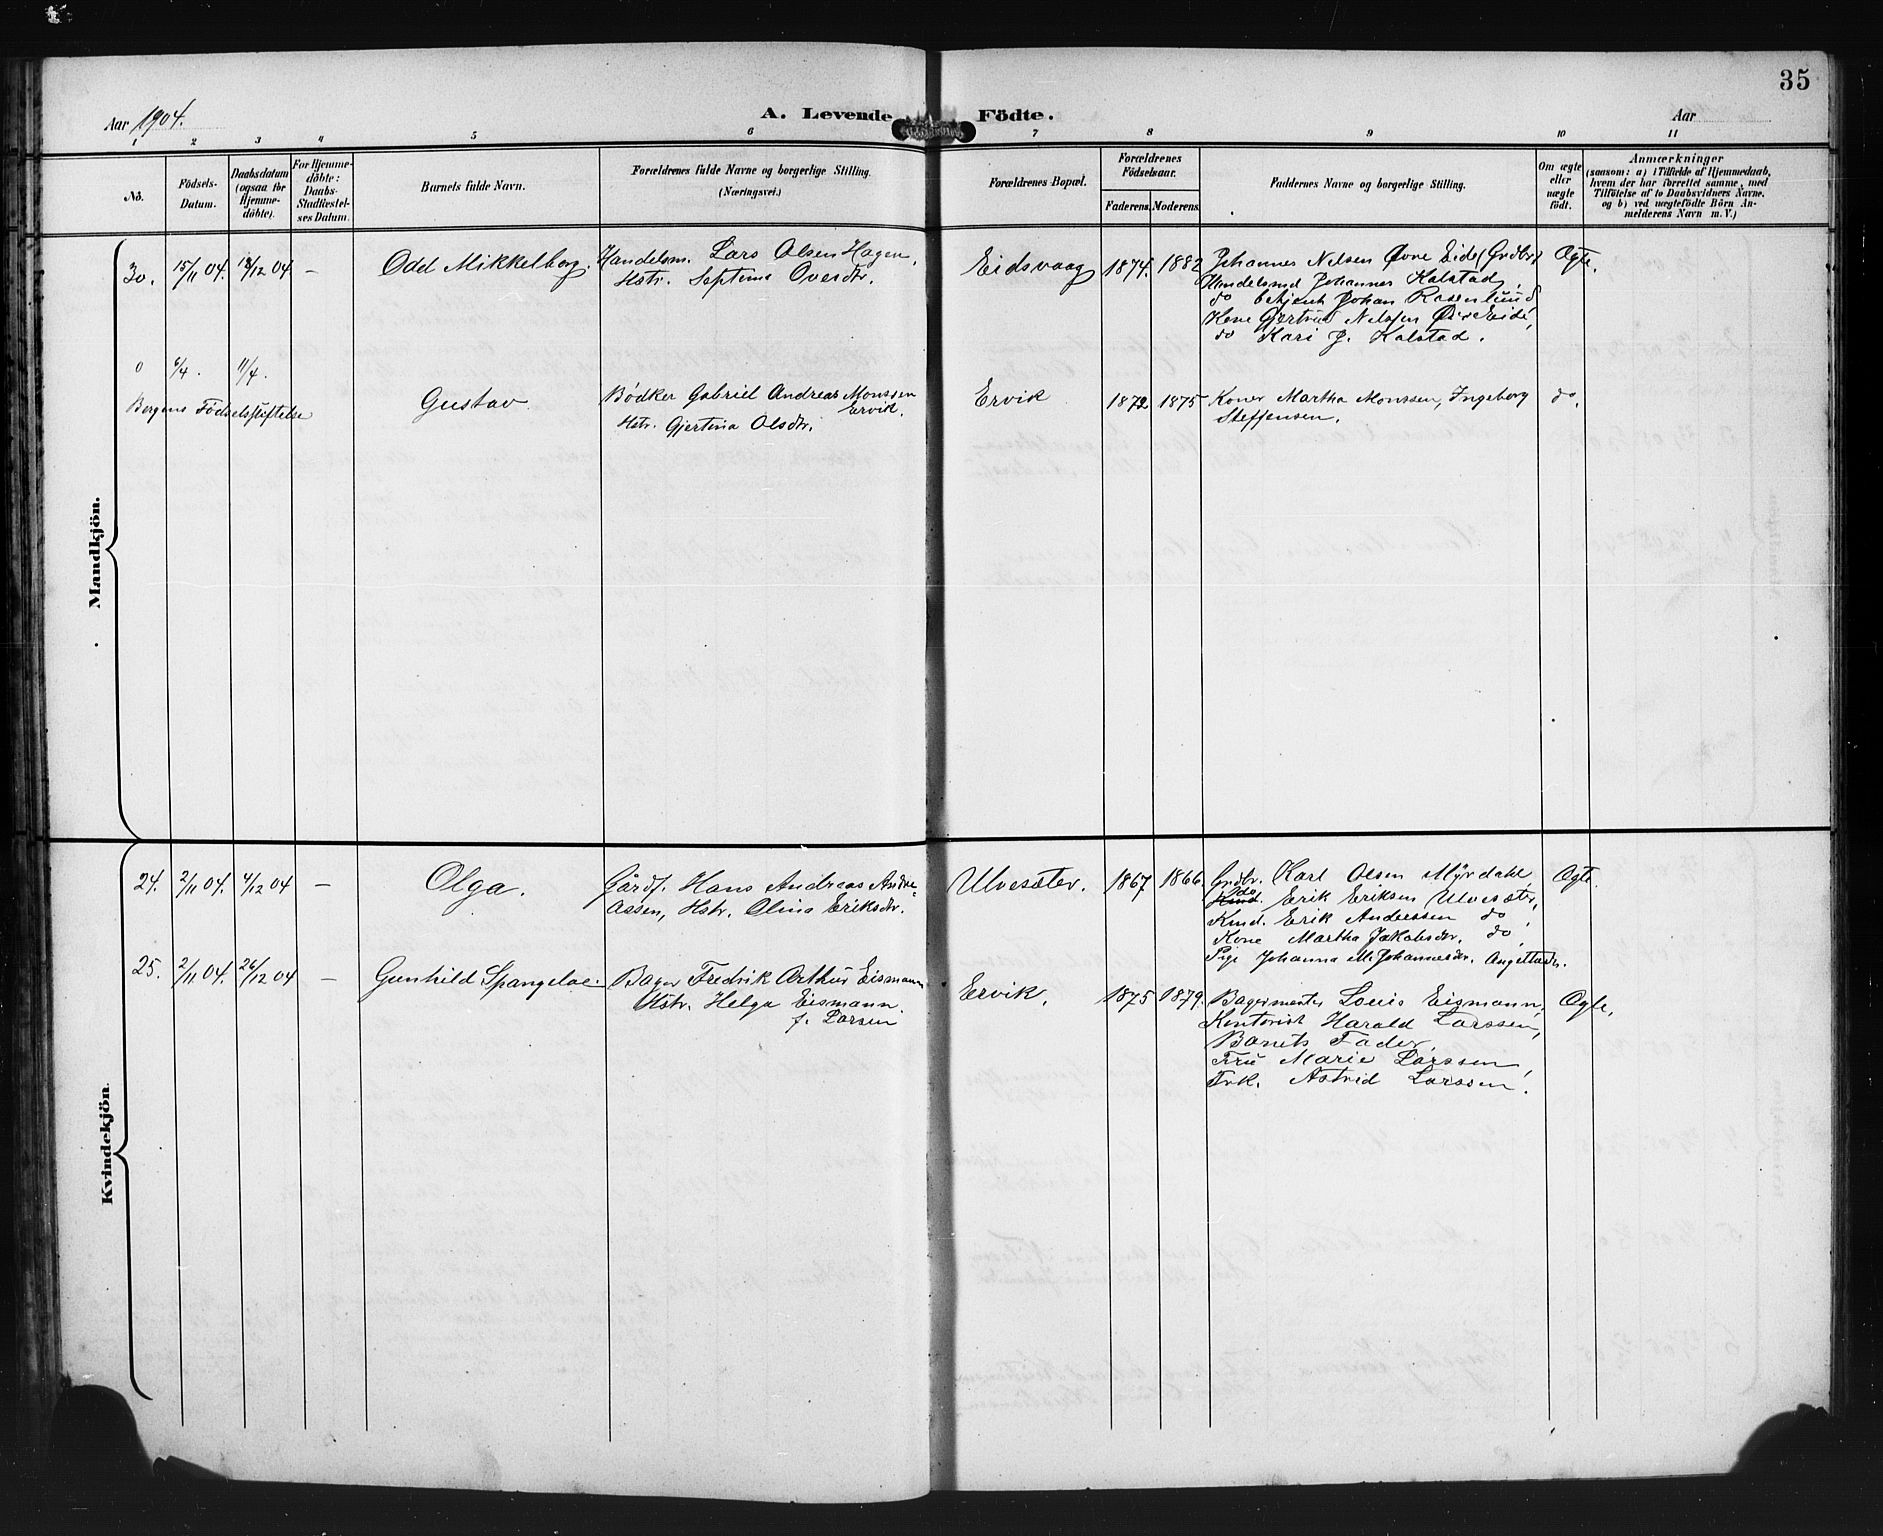 35
Aar 1904.
A. Levende Födte.
Aar
1 2 3 4 5 6 7 8 9 10 11
No.
Födsels-Datum.
Daabsdatum (ogsaa for Hjemme-döbte).
For Hjemme-döbte: Daabs-Stadfæstel-ses Datum.
Barnets fulde Navn.
Forældrenes fulde Navne og borgerlige Stilling.
(Næringsvei.)
Forældrenes Bopæl.
Forældrenes Födselsaar.
Faderens. Moderens.
Faddernes Navne og borgerlige Stilling.
Om ægte eller uægte födt.
Anmærkninger
(saasom: a) i Tilfælde af Hjemmedaab, hvem der har forrettet samme, med Tilföielse af to Daabsvidners Navne. og b) ved uægtefödte Börn An-melderens Navn m. V.)
Mandkjön.
30. 15/11 04. 18/12 04 — Odd Mikkelborg. Handelsm. Lars Olsen Hagen,
Hstr. Septima Ovesdtr.
Eidsvaag 1874. 1882 Johannes Nelsen Øvre Eide (Grdbr)
Handelsmd Johannes Kalstad,
do betjent Johan Rosenlund
Kone Gjertrud Nelsen Øvre Eide,
do Kari J. Kalstad.
Ægte.
0 6/4. 11/4.
Bergens Födselsstiftelse
Gustav Bødker Gabriel Andreas Monssen
Ervik.
Hstr. Gjertina Olsdtr.
Ervik 1872 1875 Koner Martha Monssen, Ingeborg
Steffensen.
do.
Kvindekjön.
24. 2/11 04. 4/12 04 — Olga. Gårdf. Hans Andreas Andre-
assen, Hstr. Olina Eriksdtr.
Ulvesæter. 1867 1866. Grdbr. Karl Olsen Myrdahl,
do Erik Eriksen Ulvesæter,
Kmd. Erik Anderssen do,
Kone Martha Jakobsdtr. do,
Pige Johanna M. Johannesdtr.
Ægte.
25. 2/11 04. 26/12 04 — Gunhild Spangeloe. Bager Fredrik Arthur Eismann
Hstr. Helga Eismann
f. Larsen
Ervik. 1875 1879. Bagermester Louis Eismann,
Kontorist Harald Larssen,
Barnets Fader,
Fru Marie Larssen,
Frk. Astrid Larssen.
Ægte.